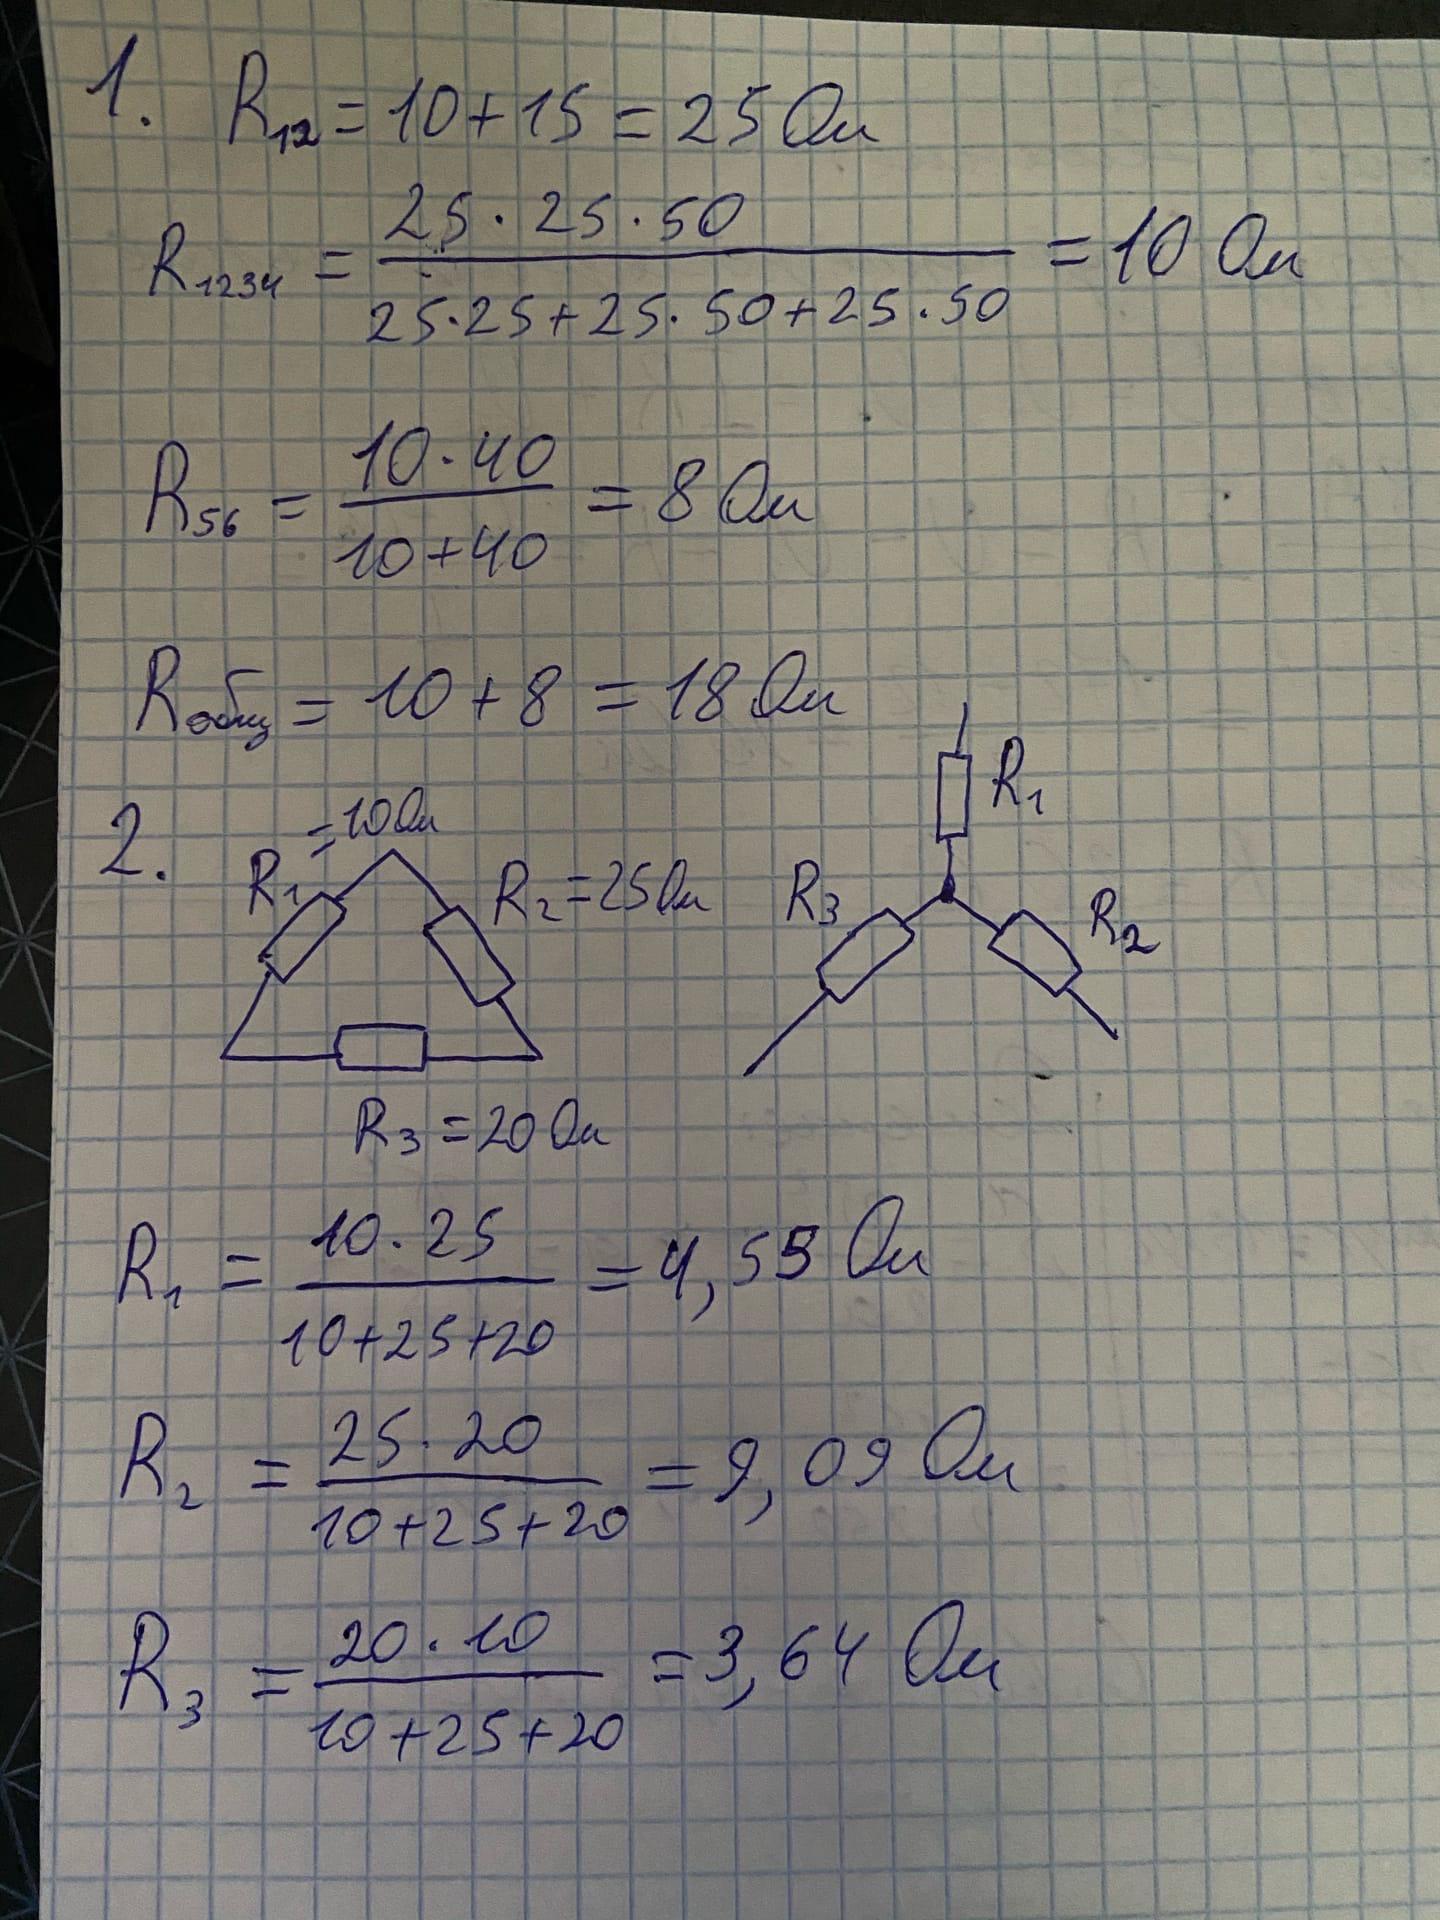 1. R₁₂ = 10 + 15 = 25 Ом
R₁₂₃₄ = (25 · 25 · 50) / (25·25 + 25·50 + 25·50) = 10 Ом
R₅₆ = (10 · 40) / (10 + 40) = 8 Ом
Rобщ = 10 + 8 = 18 Ом
2.
R₁ = 10 Ом
R₂ = 25 Ом
R₃ = 20 Ом
R₁
R₃
R₂
R₁ = (10 · 25) / (10 + 25 + 20) = 4,55 Ом
R₂ = (25 · 20) / (10 + 25 + 20) = 9,09 Ом
R₃ = (20 · 10) / (10 + 25 + 20) = 3,64 Ом